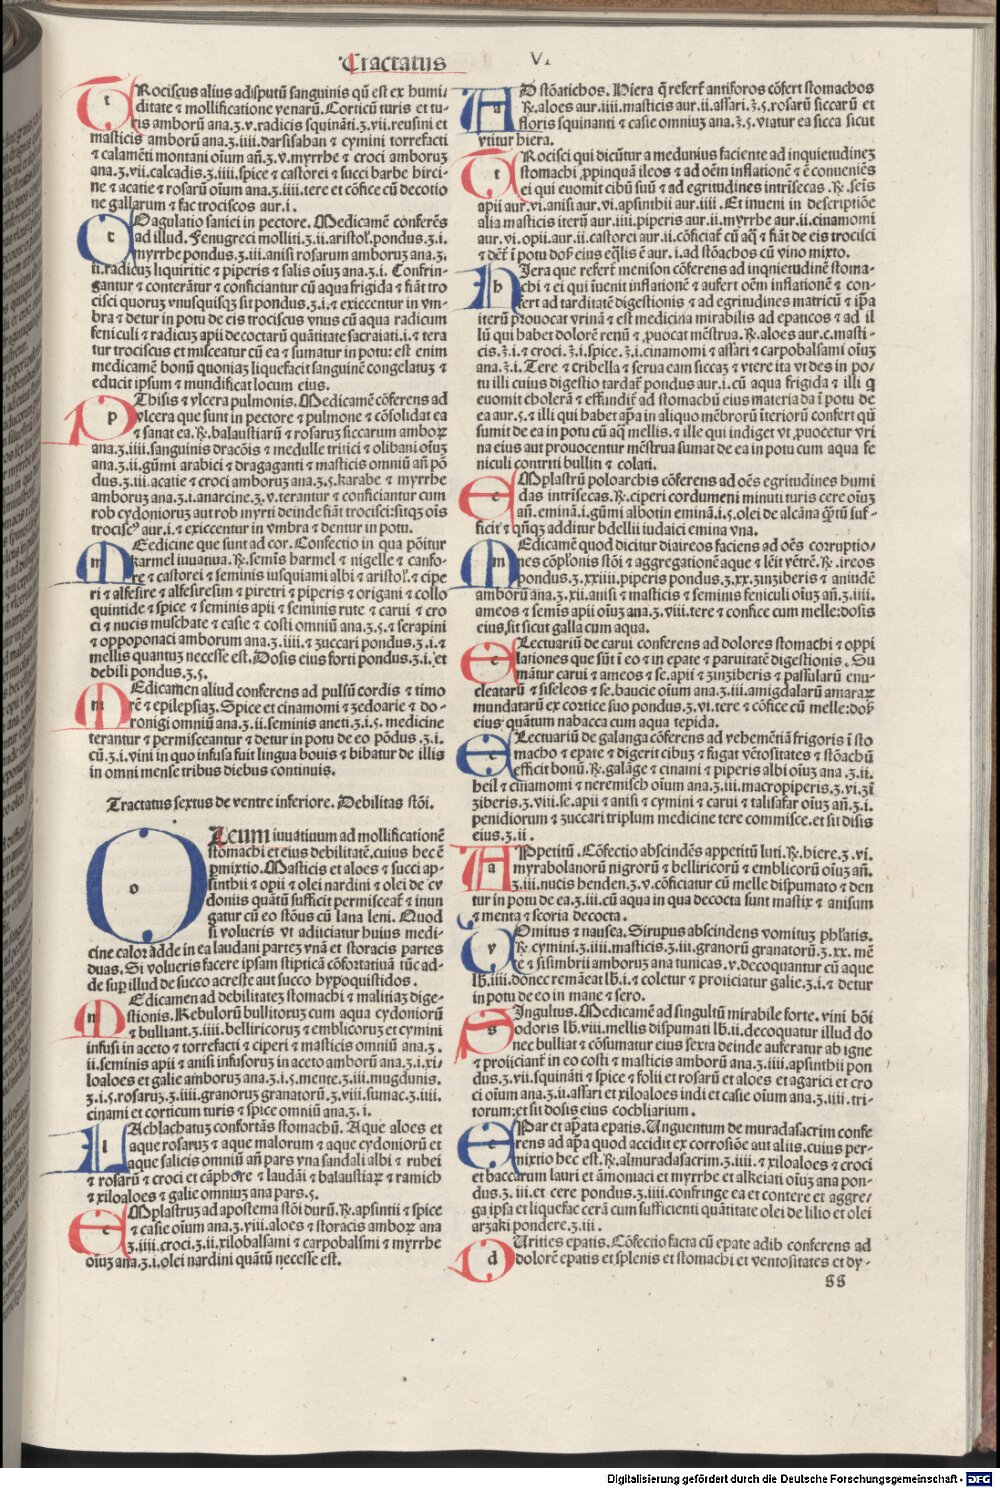 Tractatus VI
TRociscus alius ad isputũ sanguinis qũ est ex humi/
ditate ⁊ mollificatione venarũ. Corticũ turis et tu-
ris amborũ ana.ʒ.v. radicis squinãti.ʒ.vii. reusini et
masticis amborũ ana.ʒ.iiii. darsisahan ⁊ cymini torrefacti
⁊ calamẽti montani oĩum añ.ʒ.v. myrrhe ⁊ croci amboruʒ
ana.ʒ.vii. calcadis.ʒ.iiii. spice ⁊ castorei ⁊ succi barbe hirci-
ne ⁊ acatie ⁊ rosarũ oĩum ana.ʒ.iiii. tere et cõfice cũ decotio
ne gallarum ⁊ fac trociscos aur.i.
COagulatio saniei in pectore. Medicamẽ conferẽs
ad illud. Fenugreci molliti.ʒ.ii. aristol. pondus.ʒ.i.
myrrhe pondus.ʒ.iii. anisi rosarum amboruʒ ana.ʒ.
ii. radicuʒ liquiritie ⁊ piperis ⁊ salis oĩuʒ ana.ʒ.i. Confrin-
gantur ⁊ conterãtur ⁊ conficiantur cũ aqua frigida ⁊ fiãt tro
cisci quoruʒ vnusquisqʒ sit pondus.ʒ.i. ⁊ exiccentur in vm-
bra ⁊ detur in potu de eis trociscus vnus cũ aqua radicum
feniculi ⁊ radicuʒ apii decoctarũ quãtitate sacraiati.i. ⁊ tera
tur trociscus et misceatur cũ ea ⁊ sumatur in potu: est enim
medicamẽ bonũ quoniaʒ liquefacit sanguinẽ congelatuʒ ⁊
educit ipsum ⁊ mundificat locum eius.
PThisis ⁊ vlcera pulmonis. Medicamẽ cõferens ad
vlcera que sunt in pectore ⁊ pulmone ⁊ cõsolidat ea
⁊ sanat ea. ℞. balaustiarũ ⁊ rosaruʒ siccarum amboꝝ
ana.ʒ.iiii. sanguinis dracõis ⁊ medulle tritici ⁊ olibani oĩuʒ
ana.ʒ.ii. gũmi arabici ⁊ dragaganti ⁊ masticis omniũ añ põ
dus.ʒ.iii. acatie ⁊ croci amboruʒ ana.ʒ.5. karabe ⁊ myrrhe
amboruʒ ana.ʒ.i. anarcine.ʒ.v. terantur ⁊ conficiantur cum
rob cydonioruʒ aut rob myrti deinde fiãt trocisci: sitqʒ oĩs
trociscꝰ aur.i. ⁊ exiccentur in vmbra ⁊ dentur in potu.
MEedicine que sunt ad cor. Confectio in qua põitur
karmel iuuatiua. ℞. semis harmel ⁊ nigelle ⁊ canfo-
re ⁊ castorei ⁊ seminis iusquiami albi ⁊ aristol. ⁊ cipe
ri ⁊ alfesire ⁊ alfesiresim ⁊ piretri ⁊ piperis ⁊ origani ⁊ collo
quintide ⁊ spice ⁊ seminis apii ⁊ seminis rute ⁊ carui ⁊ cro
ci ⁊ nucis muschate ⁊ casie ⁊ costi omniũ ana.ʒ.5. ⁊ serapini
⁊ oppoponaci amborum ana.ʒ.iiii. ⁊ zuccari pondus.ʒ.i. ⁊
mellis quantuʒ necesse est. Dosis eius forti pondus.ʒ.i. et
debili pondus.ʒ.5.
MEdicamen aliud conferens ad pulsũ cordis ⁊ timo
rẽ ⁊ epilepsiaʒ. Spice et cinamomi ⁊ zedoarie ⁊ do-
ronigi omniũ ana.ʒ.ii. seminis aneti.ʒ.i.5. medicine
terantur ⁊ permisceantur ⁊ detur in potu de eo põdus.ʒ.i.
cũ.ʒ.i. vini in quo infusa fuit lingua bouis ⁊ bibatur de illis
in omni mense tribus diebus continuis.
Tractatus sextus de ventre inferiore. Debilitas stõi.
OLeum iuuatiuum ad mollificationẽ
stomachi et eius debilitatẽ. cuius hec ẽ
ꝑmixtio. Masticis et aloes ⁊ succi ap-
sinthii ⁊ opii ⁊ olei nardini ⁊ olei de cy
doniis quãtũ sufficit permisceat̃ ⁊ inun
gatur cũ eo stõus cũ lana leni. Quod
si volueris vt adiuciatur huius medi-
cine calor adde in ea laudani partẽ vnã et storacis partes
duas. Si volueris facere ipsam stipticã cõfortatiuã tũc ad-
de suꝑ illud de succo acreste aut succo hypoquistidos.
MEdicamen ad debilitateʒ stomachi ⁊ malitiaʒ dige-
stionis. Kebulorũ bullitoruʒ cum aqua cydoniorũ
⁊ bulliant.ʒ.iiii. belliricoruʒ ⁊ emblicoruʒ et cymini
infusi in aceto ⁊ torrefacti ⁊ ciperi ⁊ masticis omniũ ana.ʒ.
ii. seminis apii ⁊ anisi infusoruʒ in aceto amborũ ana.ʒ.i. xi/
loaloes et galie amboruʒ ana.ʒ.i.5. mente.ʒ.iii. mugdunis.
ʒ.i.5. rosaruʒ.ʒ.iiii. granoruʒ granatorũ.ʒ.viii. sumac.ʒ.iiii.
cinami et corticum turis ⁊ spice omniũ ana.ʒ.i.
LAchlachatuʒ confortãs stomachũ. Aque aloes et
aque rosaruʒ ⁊ aque malorum ⁊ aque cydoniorũ et
aque salicis omniũ añ pars vna sandali albi ⁊ rubei
⁊ rosarũ ⁊ croci et cãphore ⁊ laudãi ⁊ balaustiaꝝ ⁊ ramich
⁊ xiloaloes ⁊ galie omniuʒ ana pars.5.
EMplastruʒ ad apostema stõi durũ. ℞. apsintii ⁊ spice
⁊ casie oĩum ana.ʒ.viii. aloes ⁊ storacis amboꝝ ana
ʒ.iiii. croci.ʒ.ii. xilobalsami ⁊ carpobalsmi ⁊ myrrhe
oĩuʒ ana.ʒ.i. olei nardini quãtũ necesse est.
AD stõatichos. Hiera q̃ refert̃ antiforos cõfert stomachos
℞. aloes aur.iiii. masticis aur.ii. assari.ʒ.5. rosarũ siccarũ et
floris squinanti ⁊ casie omniuʒ ana.ʒ.5. vtatur ea sicca sicut
vtitur hiera.
TRocisci qui dicũtur a medunius faciente ad inquietudineʒ
stomachi ꝓpinquã ileos ⁊ ad oẽm inflationẽ ⁊ ẽ conueniẽs
ei qui euomit cibũ suũ ⁊ ad egritudines intrĩsecas. ℞. seĩs
apii aur.vi. anisi aur.vi. apsinthii aur.iiii. Et inueni in descriptiõe
alia masticis iterũ aur.iiii. piperis aur.ii. myrrhe aur.ii. cinamomi
aur.vi. opii aur.ii. castorei aur.ii. cõficiat̃ cũ aq̃ ⁊ fiãt de eis trocisci
⁊ det̃ ĩ potu dos̃ eius eq̃lis ẽ aur.i. ad stõachos cũ vino mixto.
HIera que refert̃ menison cõferens ad inquietudinẽ stoma-
chi ⁊ ei qui ĩuenit inflationẽ ⁊ aufert oẽm inflationẽ ⁊ con-
fert ad tarditatẽ digestionis ⁊ ad egritudines matricũ ⁊ ip̃a
iterũ prouocat vrinã ⁊ est medicina mirabilis ad epaticos ⁊ ad il
lũ qui habet dolorẽ renũ ⁊ ꝓuocat mẽstrua. ℞. aloes aur.c. masti-
cis.ʒ.i. ⁊ croci.ʒ.i. spice.ʒ.i. cinamomi ⁊ assari ⁊ carpobalsami oĩuʒ
ana.ʒ.i. Tere ⁊ cribella ⁊ serua eam siccaʒ ⁊ vtere ita vt des in po-
tu illi cuius digestio tardat̃ pondus aur.i. cũ aqua frigida ⁊ illi q̃
euomit cholerã ⁊ effundit̃ ad stomachũ eius materia da ĩ potu de
ea aur.5. ⁊ illi qui habet ap̃a in aliquo mẽbrorũ ĩteriorũ confert qũ
sumit de ea in potu cũ aq̃ mellis. ⁊ ille qui indiget vt ꝓuocetur vri
na eius aut prouocentur mẽstrua sumat de ea in potu cum aqua fe
niculi contriti bulliti ⁊ colati.
EMplastrũ poloarchis cõferens ad oẽs egritudines humi
das intrĩsecas. ℞. ciperi cordumeni minuti turis cere oĩuʒ
añ. eminã.i. gũmi albotin eminã.i.5. olei de alcãna q̃tũ suf-
ficit ⁊ qñqʒ additur bdellii iudaici emina vna.
MEdicamẽ quod dicitur diaireos faciens ad oẽs corruptio/
nes cõplonis stõi ⁊ aggregationẽ aque ⁊ lẽit vẽtrẽ. ℞. ireos
pondus.ʒ.xxiiii. piperis pondus.ʒ.xx. zinziberis ⁊ aniudẽ
amborũ ana.ʒ.xii. anisi ⁊ masticis ⁊ seminis feniculi oĩuʒ añ.ʒ.iiii.
ameos ⁊ semis apii oĩuʒ ana.ʒ.viii. tere ⁊ confice cum melle: dosis
eius sit sicut galla cum aqua.
ELectuariũ de carui conferens ad dolores stomachi ⁊ oppi
lationes que sũt ĩ eo ⁊ in epate ⁊ paruitatẽ digestionis. Su
mãtur carui ⁊ ameos ⁊ se. apii ⁊ zinziberis ⁊ passularũ enu-
cleatarũ ⁊ siseleos ⁊ se. baucie oĩum ana.ʒ.iii. amigdalarũ amaraꝝ
mundatarũ ex cortice suo pondus.ʒ.vi. tere ⁊ cõfice cũ melle: dos̃
eius quãtum nabacca cum aqua tepida.
ELectuariũ de galanga cõferens ad vehemẽtiã frigoris ĩ sto
macho ⁊ epate ⁊ digerit cibuʒ ⁊ fugat vẽtositates ⁊ stõachũ
efficit bonũ. ℞. galãge ⁊ cinami ⁊ piperis albi oĩuʒ ana.ʒ.ii.
heil ⁊ cinamomi ⁊ neremisch oĩum ana.ʒ.iii. macropiperis.ʒ.vi. zĩ
ziberis.ʒ.viii. se. apii ⁊ anisi ⁊ cymini ⁊ carui ⁊ talisafar oĩuʒ añ.ʒ.i.
penidiorum ⁊ zuccari triplum medicine tere commisce. et sit dosis
eius.ʒ.ii.
APpetitũ. Cõfectio abscindẽs appetitũ luti. ℞. hiere.ʒ.vi.
myrabolanorũ nigrorũ ⁊ belliricorũ ⁊ emblicorũ oĩuʒ añ.
ʒ.iii. nucis henden.ʒ.v. cõficiatur cũ melle dispumato ⁊ den
tur in potu de ea.ʒ.iii. cũ aqua in qua decocta sunt mastix ⁊ anisum
⁊ menta ⁊ scoria decocta.
VOmitus ⁊ nausea. Sirupus abscindens vomituʒ phl̃atis.
℞. cymini.ʒ.iiii. masticis.ʒ.iii. granorũ granatorũ.ʒ.xx. mẽ
te ⁊ sisimbrii amboruʒ ana tunicas.v. decoquantur cũ aque
lb̃.iiii. donec remãeat lb̃.i. ⁊ coletur ⁊ proiiciatur galie.ʒ.i. ⁊ detur
in potu de eo in mane ⁊ sero.
SIngultus. Medicamẽ ad singultũ mirabile forte. vini bõi
odoris lb̃.viii. mellis dispumati lb̃.ii. decoquatur illud do
nec bulliat ⁊ cõsumatur eius sexta deinde auferatur ab igne
⁊ proiiciant̃ in eo costi ⁊ masticis amborũ ana.ʒ.iiii. apsinthii pon
dus.ʒ.vii. squinãti ⁊ spice ⁊ folii et rosarũ et aloes et agarici et cro
ci oĩum ana.ʒ.ii. assari et xiloaloes indi et casie oĩum ana.ʒ.iiii. tri-
torum: et sit dosis eius cochliarium.
EPar et ap̃ata epatis. Unguentum de muradasacrim confe
rens ad ap̃a quod accidit ex corrosiõe aut aliis. cuius per-
mixtio hec est. ℞. almuradasacrim.ʒ.iiii. ⁊ xiloaloes ⁊ croci
et baccarum lauri et ãmoniaci et myrrhe et alkeiati oĩuʒ ana pon-
dus.ʒ.iii. et cere pondus.ʒ.iiii. confringe ea et contere et aggre/
ga ipsa et liquefac cerã cum sufficienti quãtitate olei de lilio et olei
arzaki pondere.ʒ.iii.
DUrities epatis. Cõfectio facta cũ epate adib conferens ad
dolorẽ epatis et splenis et stomachi et ventositates et dy-
ss
Digitalisierung gefördert durch die Deutsche Forschungsgemeinschaft - DFG